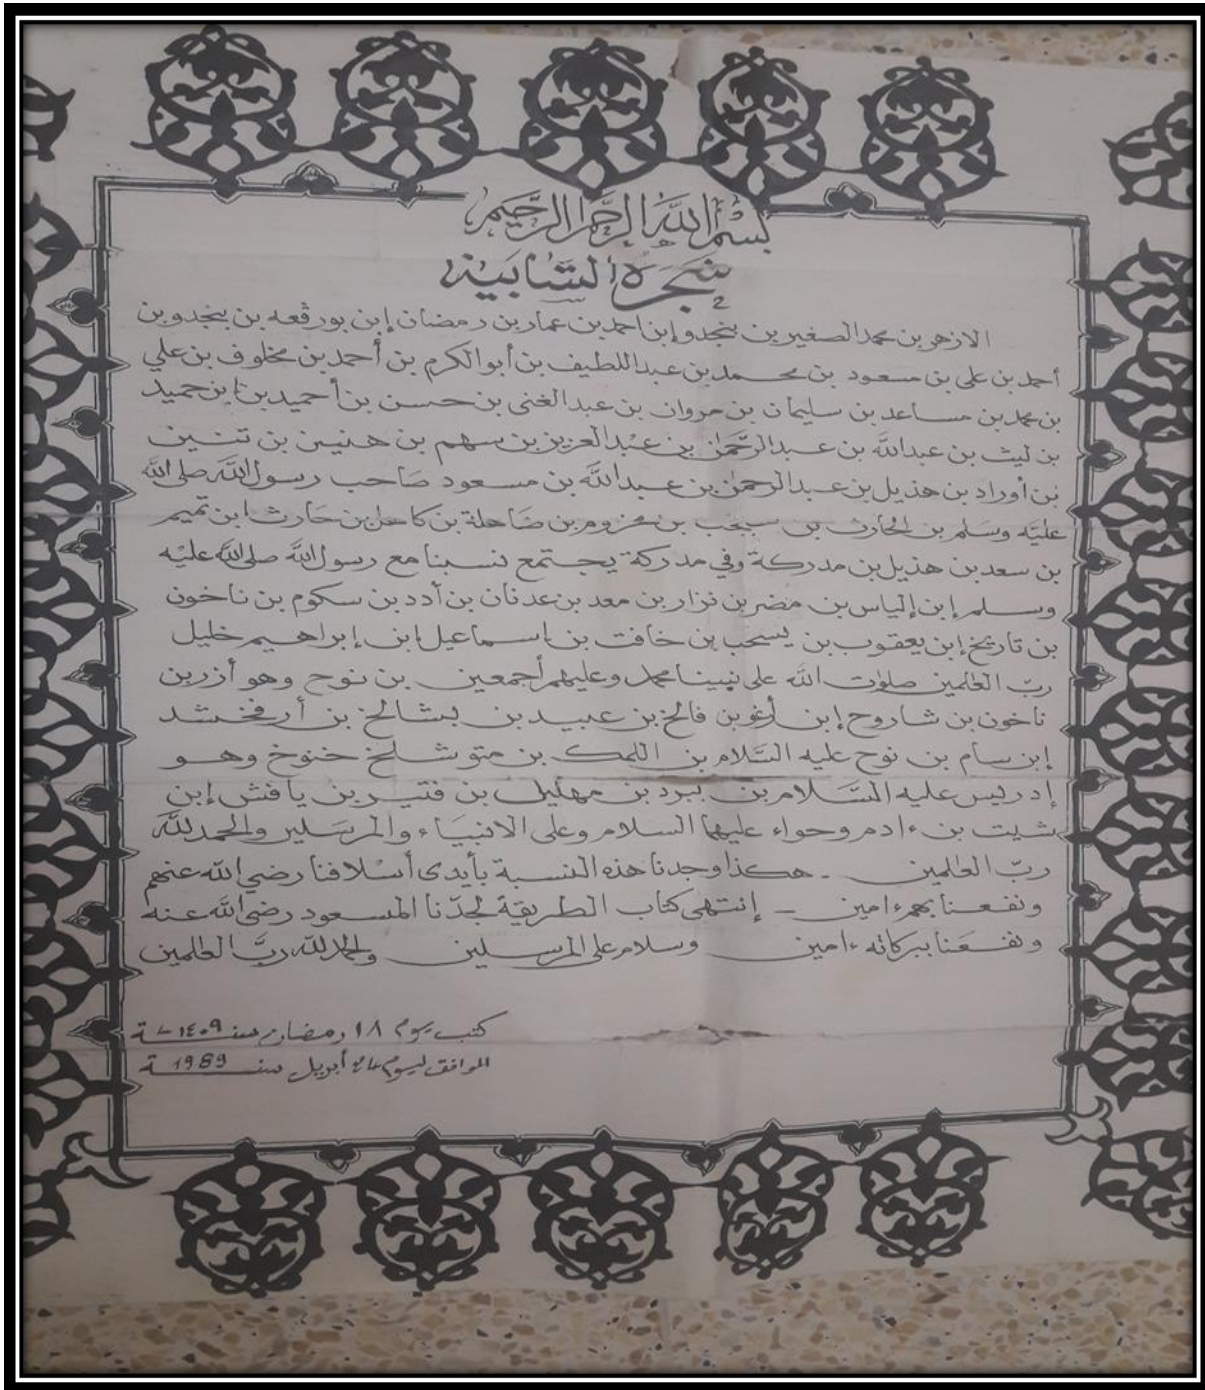 بسم الله الرحمن الرحيم
شجرة الشابية
الازهر بن محمد الصغير بن بنجدو إبن احمد بن عمار بن رمضان إبن بورقعه بن بنجدو بن
أحمد بن على بن مسعود بن محمد بن عبد اللطيف بن أبو الكرم بن أحمد بن مخلوف بن علي
بن محمد بن مساعد بن سليمان بن مروان بن عبد الغنى بن حسن بن أحميد بن إبن حميد
بن ليث بن عبد الله بن عبد الرحمن بن عبد العزيز بن سهم بن هنيين بن تنين
بن أوراد بن هذيل بن عبد الرحمن بن عبد الله بن مسعود صاحب رسول الله صلى الله
عليه وسلم بن الحارث بن سيخب بن مخزوم بن ضاحلة بن كاحل بن حارث ابن تميم
بن سعد بن هذيل بن مدركة وفي مدركة يجتمع نسبنا مع رسول الله صلى الله عليه
وسلم إبن إلياس بن مضر بن نزار بن معد بن عدنان بن أدد بن سكوم بن ناخون
بن تاريخ إبن يعقوب بن يسحب بن خافت بن اسماعيل ابن إبراهيم خليل
ربّ العالمين صلوات الله على نبينا محمد وعليهم أجمعين بن نوح وهو أزر بن
ناخون بن شاروح إبن أرغو بن فالخ بن عبيد بن بشالخ بن أرفخشد
إبن سام بن نوح عليه السّلام بن اللمك بن متوشلخ خنوخ وهو
إدريس عليه السّلام بن يبرد بن مهليل بن فتير بن يافش إبن
شيت بن ءادم وحواء عليهما السلام وعلى الانبياء والمرسلين والحمد للّه
ربّ العالمين - هكذا وجدنا هذه النسبة بأيدى أسلافنا رضي الله عنهم
ونفعنا بهم ءامين - إنتهى كتاب الطريقة لجدّنا المسعود رضى الله عنه
ونفعنا ببركاته ءامين وسلام على المرسلين والحمد لله ربّ العالمين
كتب يوم ١٨ رمضان سنة ١٤٠٩
الموافق ليوم أبريل سنة 1989